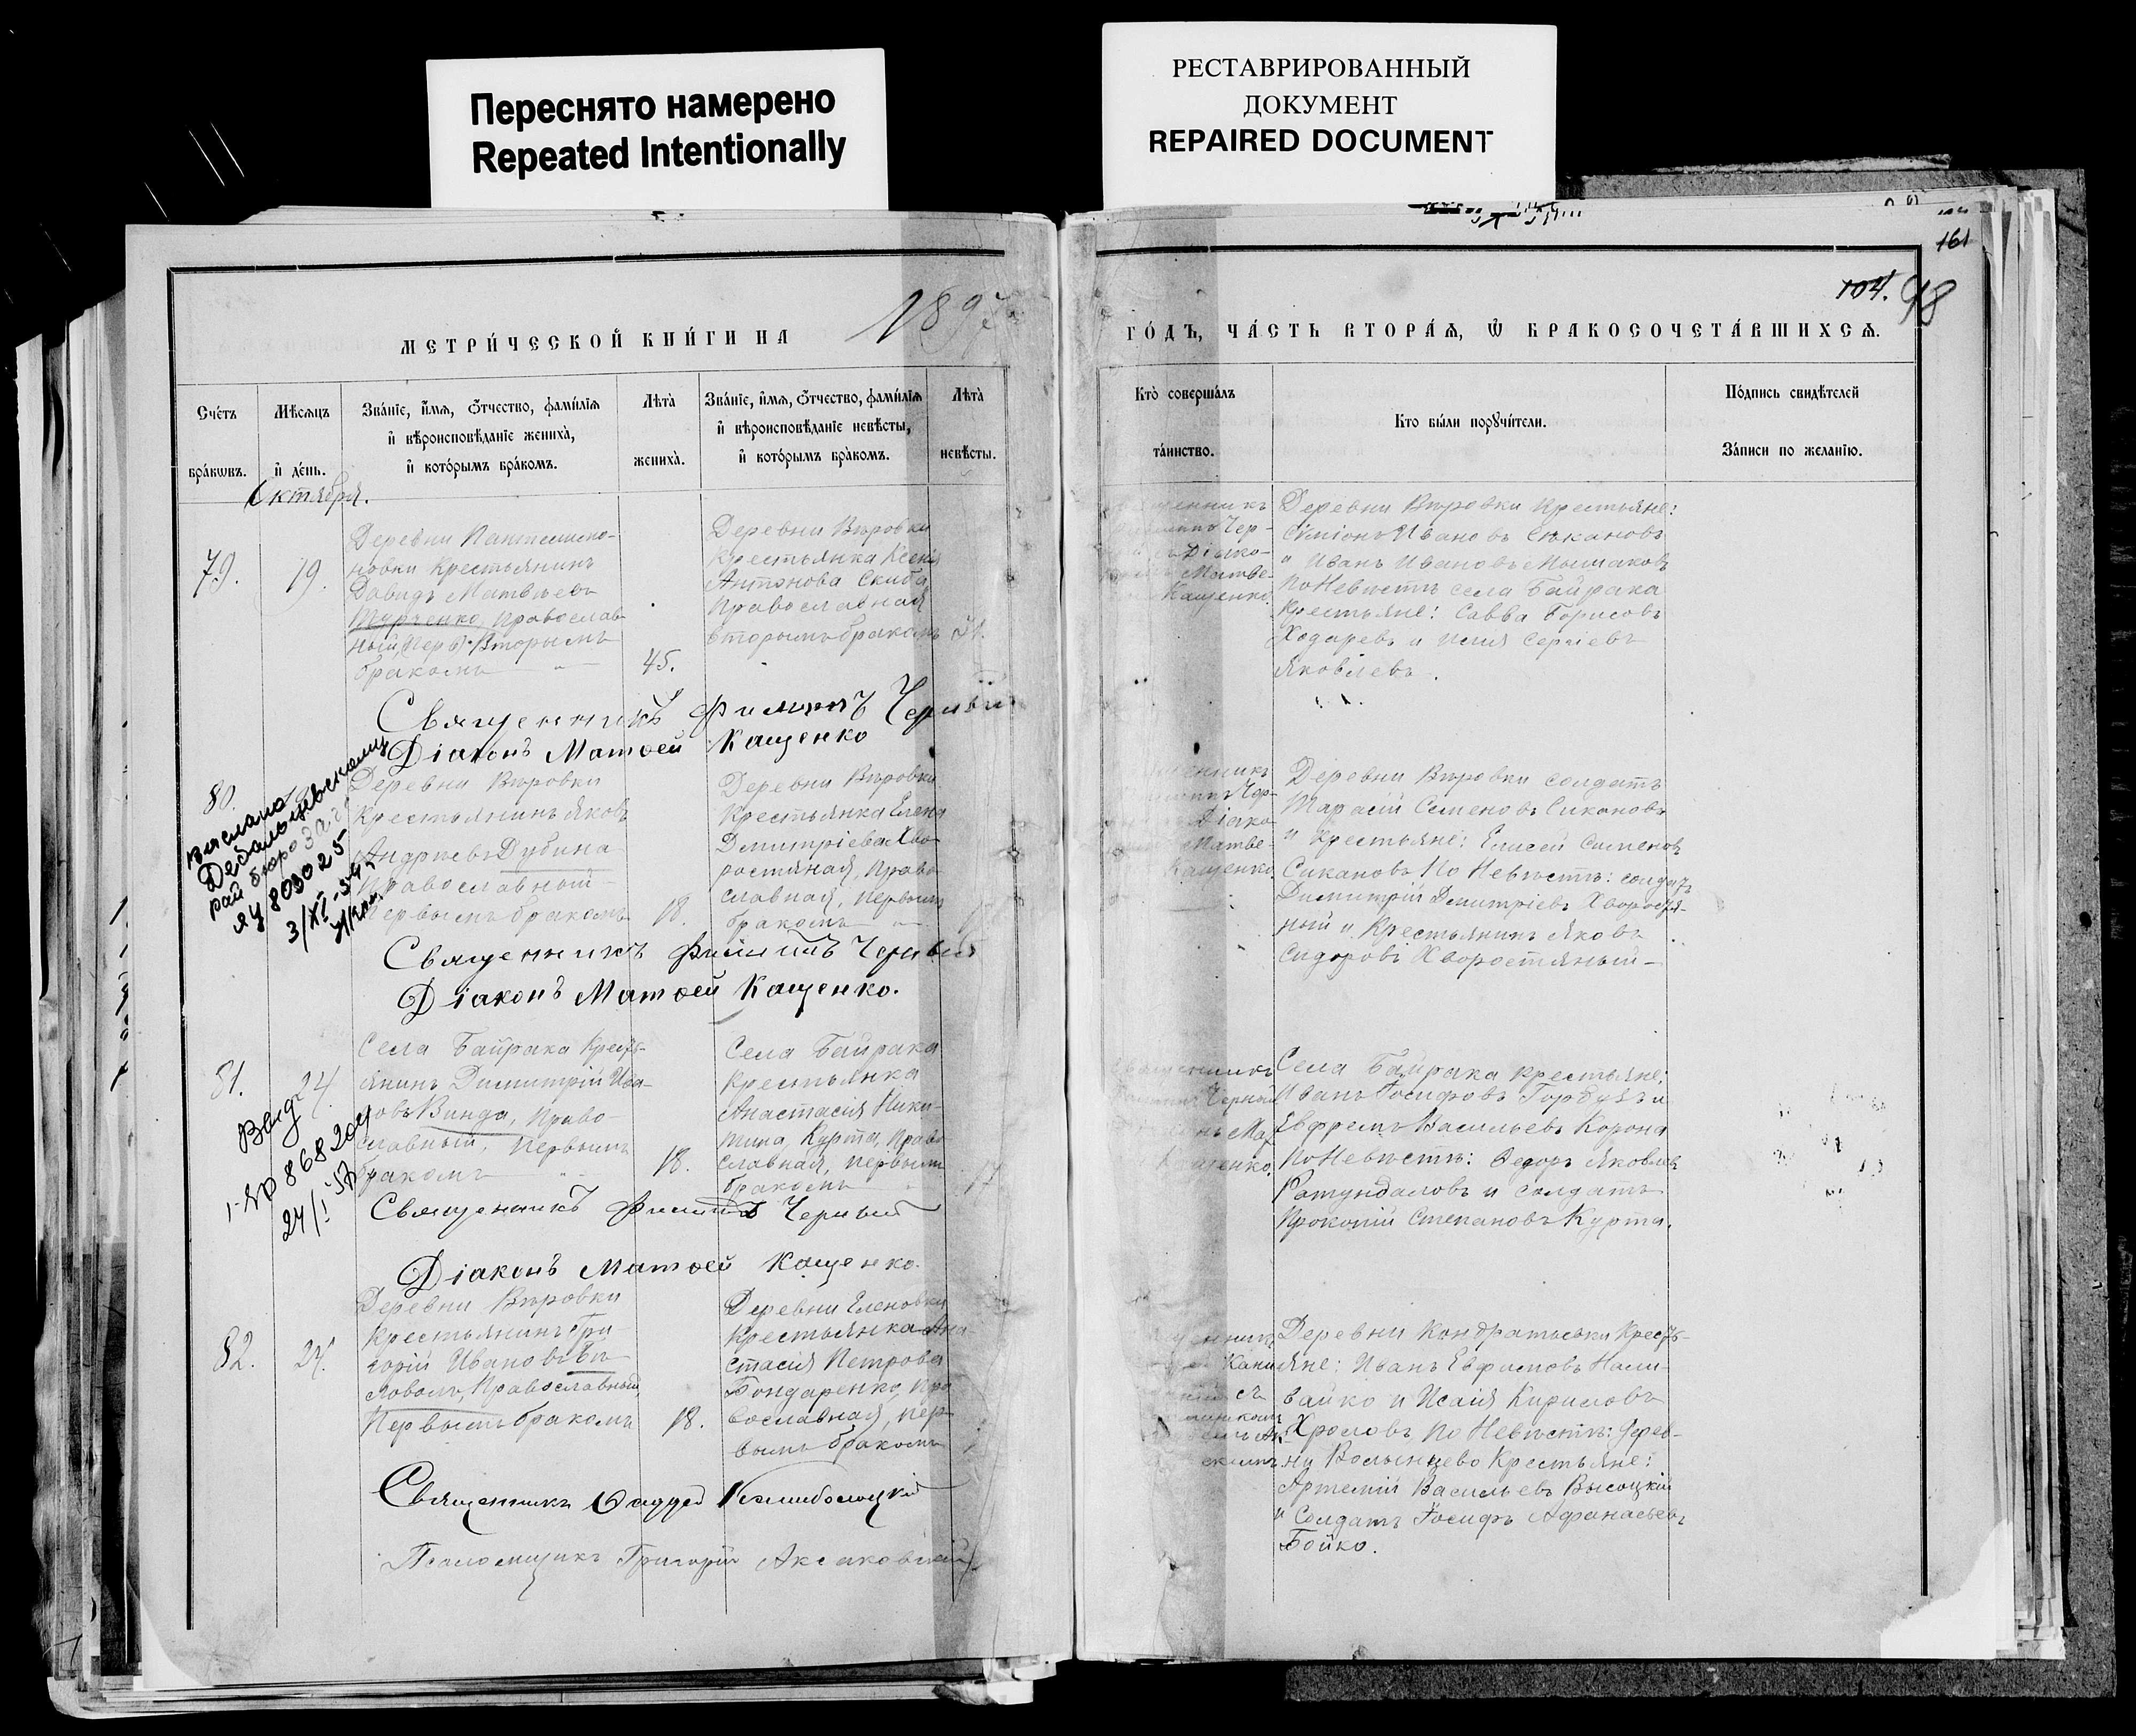 Переснято намерено
Repeated Intentionally
РЕСТАВРИРОВАННЫЙ
ДОКУМЕНТ
REPAIRED DOCUMENT
161
104. 98
МЕТРИ́ЧЕСКОЙ КНИ́ГИ НА 1897
ГО́ДЪ, ЧА́СТЬ ВТОРА́Ѧ, Ѿ БРАКОСОЧЕТА́ВШИХСѦ.
Сче́тъ бра́кѡвъ.
Мѣ́сѧцъ и҆ де́нь.
Зва́нїе, и҆́мѧ, ѻ҆́тчество, фамѝлїѧ
и҆ вѣроисповѣ́данїе жениха̀,
и҆ кото́рымъ бра́комъ.
Лѣта̀
жениха̀.
Зва́нїе, и҆́мѧ, ѻ҆́тчество, фамѝлїѧ
и҆ вѣроисповѣ́данїе невѣ́сты,
и҆ кото́рымъ бра́комъ.
Лѣта̀
невѣ́сты.
Кто̀ соверша́лъ
та́инство.
Кто бы́ли порꙋчи́тели.
По́дпись свидѣ́телей
За́писи по жела́нїю.
Октября.
79.
19.
Деревни Пантелеимо-
новки Крестьянинъ
Давидъ Матвѣевъ
Турченко, Православ-
ный, Вторымъ
бракомъ
45.
Деревни Вѣровки
Крестьянка Ксенія
Антонова Скиба
Православная
вторымъ бракомъ
Чер-
Діако-
Матве-
Кащенко.
Деревни Вѣровки Крестьяне:
Симіонъ Ивановъ Сикановъ
и Иванъ Ивановъ
По Невѣстѣ села Байрака
Крестьяне: Савва Борисовъ
Ходаревъ и Сергіевъ
Яковлевъ.
Священникъ Филиппъ Черный
Діаконъ Матѳей Кащенко
80.
выслано
Дебальцевскому
рай бюро загс
ЯЦ 803025
3/XI-54г
Деревни Вѣровки
Крестьянинъ Яковъ
Андріевъ Дубина
Православный
Первымъ бракомъ
18.
Деревни Вѣровки
Крестьянка Елена
Димитріева Хво-
ростяная, Право
славная, первымъ
бракомъ
Чер-
Діако-
Матве-
Кащенко.
Деревни Вѣровки солдатъ
Тарасій Семеновъ Сикановъ
и крестьяне: Елисей Сименовъ
Сикановъ По Невѣстѣ: солдатъ
Димитрій Дмитріевъ Хворостя-
ный и Крестьянинъ Яковъ
Сидоровъ Хворостяный
Священникъ Филиппъ Черный
Діаконъ Матѳей Кащенко.
81.
24.
Выд
868204
Села Байрака Кресть-
янинъ Димитрій Ива-
новъ Винда, Право-
славный, Первымъ
бракомъ
18.
Села Байрака
Крестьянка
Анастасія Ники-
тина, Курта, Право
славная, первымъ
бракомъ
17
Черный
Кащенко.
Села Байрака крестьяне:
Иванъ Іосифовъ Горбузъ и
Ефремъ Васильевъ Корона
По Невѣстѣ: Ѳедоръ Яковлев
и солдатъ
Прокопій Степановъ Курта.
Священникъ Филиппъ Черный
Діаконъ Матѳей Кащенко.
82.
24.
Деревни Вѣровки
Крестьянинъ Гри-
горій Ивановъ Бѣ-
ловолъ, Православный,
Первымъ бракомъ
18.
Деревни Еленовки
Крестьянка Ана
стасія Петрова
Бондаренко, Пра
вославная, пер-
вымъ бракомъ
Деревни Кондратьевки Кресть-
яне: Иванъ Евфимовъ Нали-
вайко и Исаія Кириловъ
Хромовъ По Невѣстѣ: дерев-
ни Волынцево Крестьяне:
Артемій Васильевъ Высоцкій
и Солдатъ Іосифъ Афанасьевъ
Бойко.
Священникъ
Псаломщикъ Григорій Аксаковскій